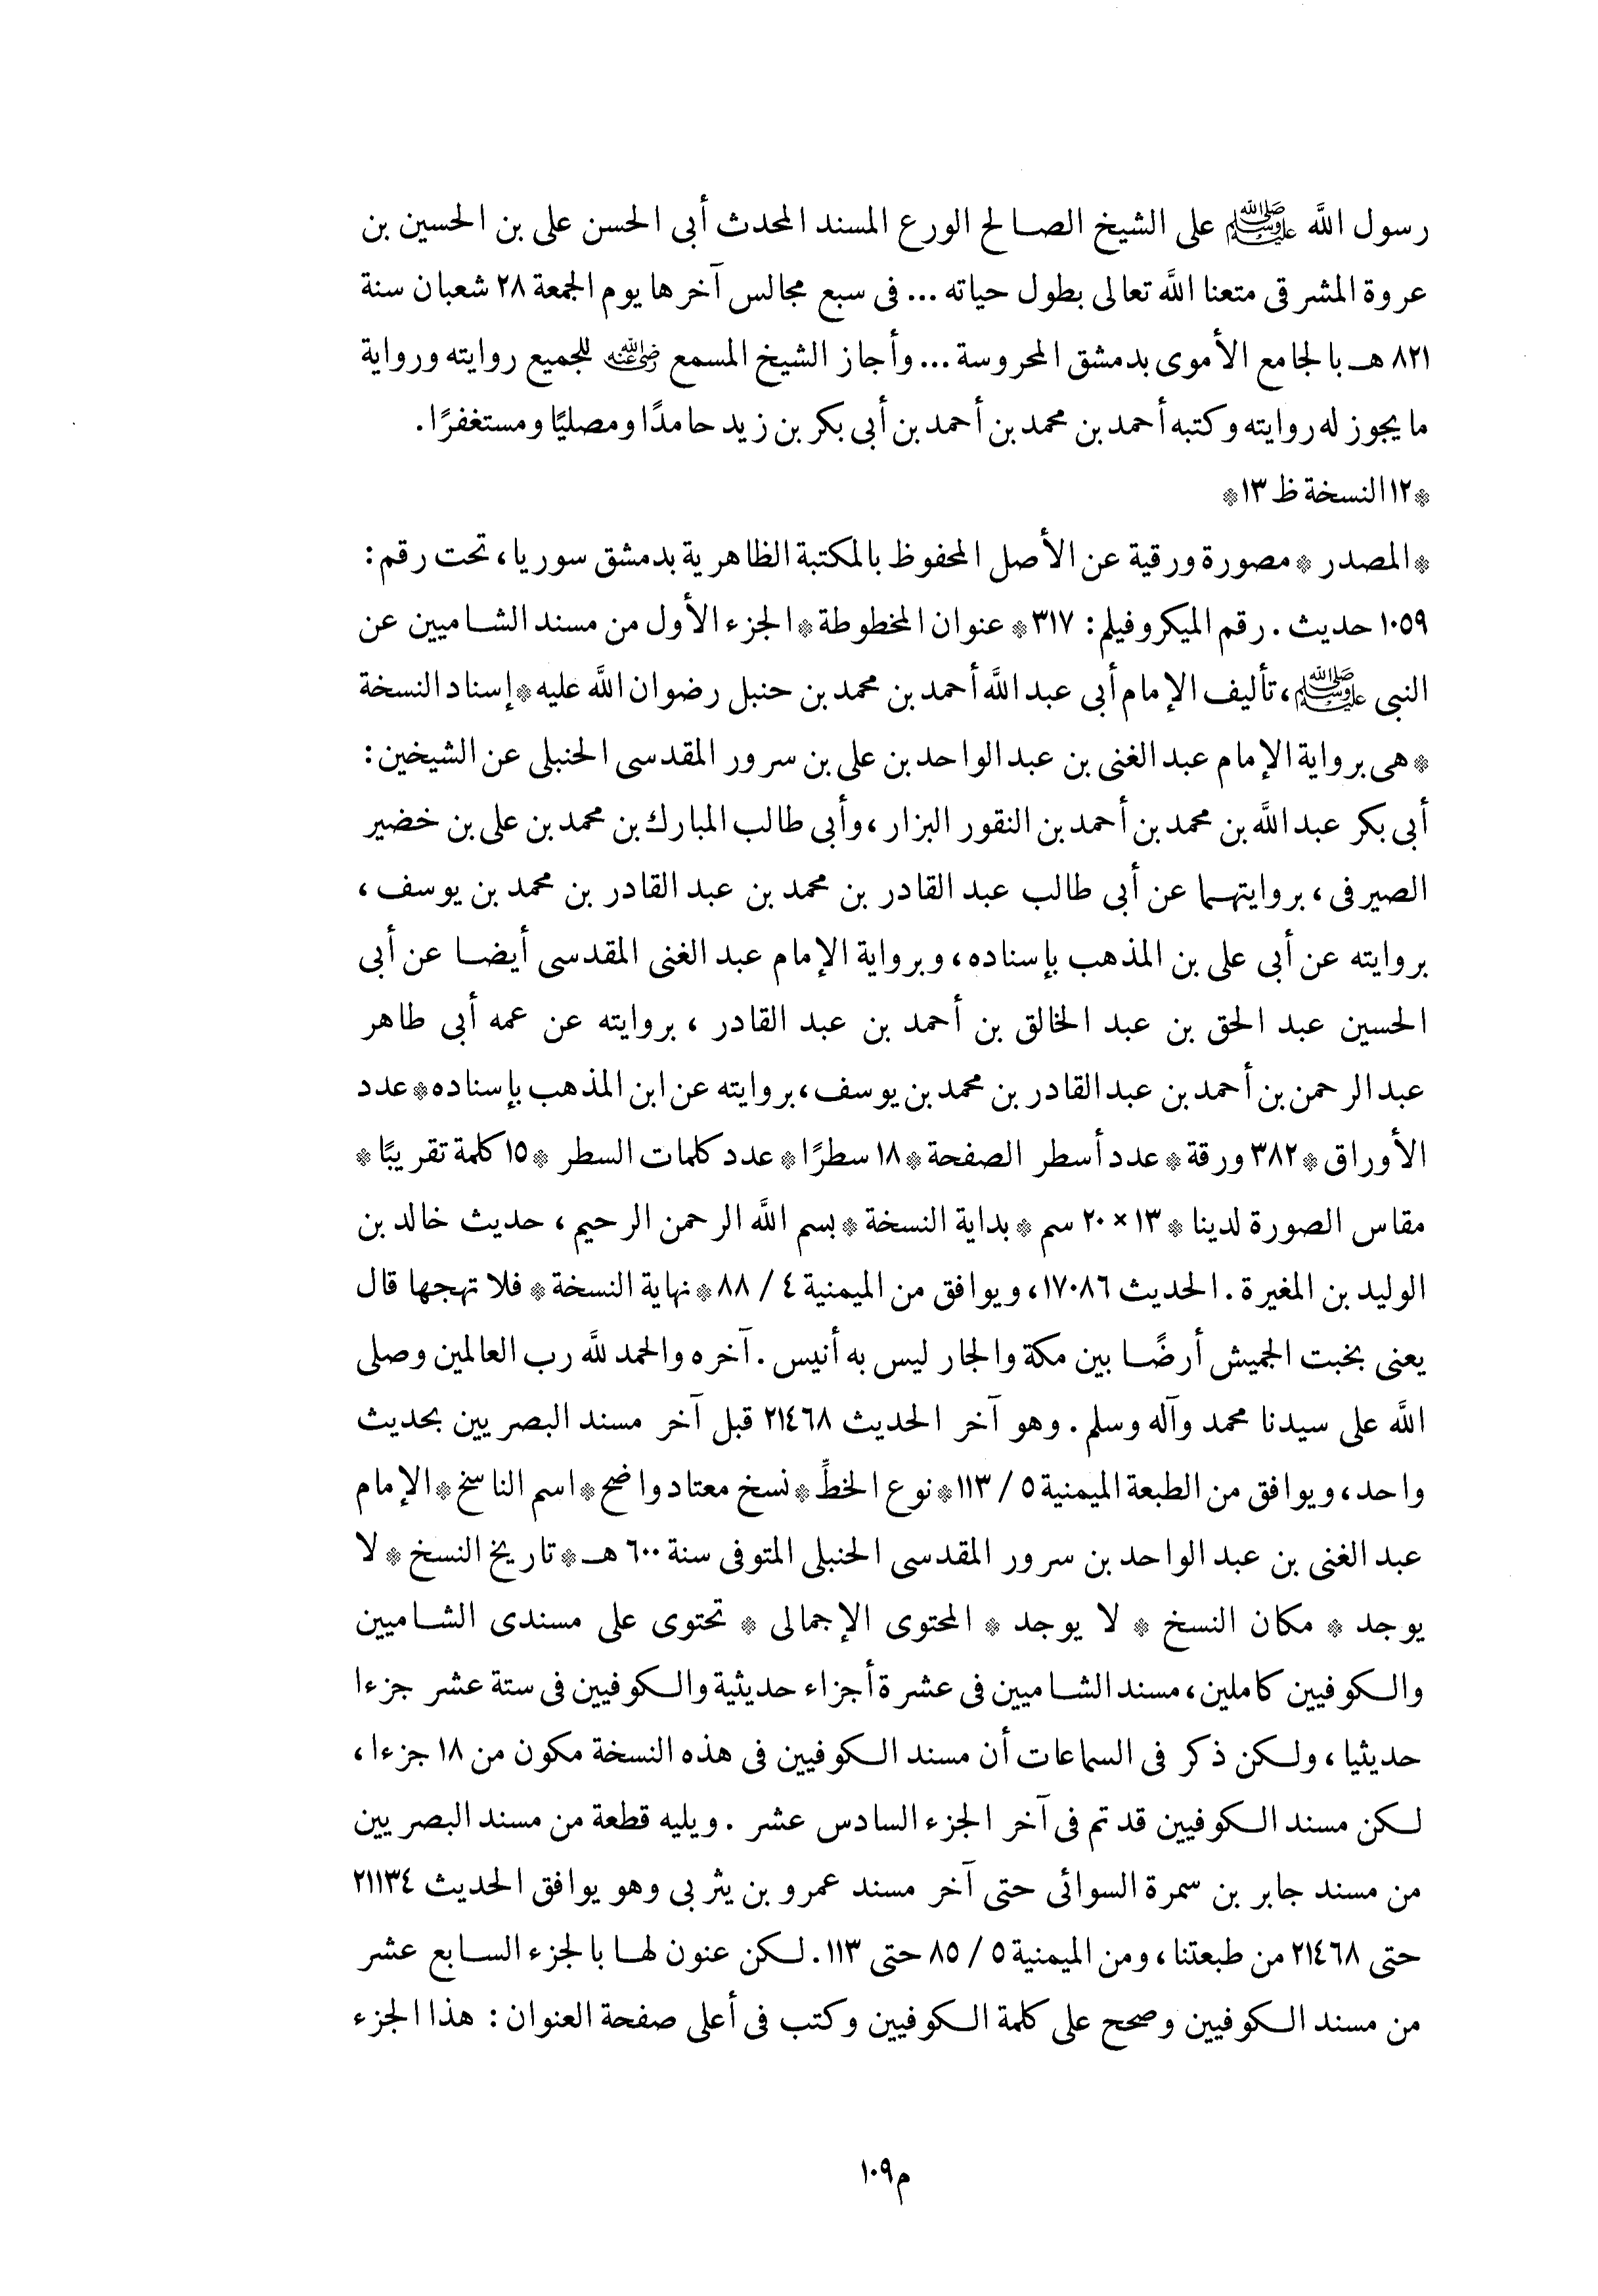 رسول اللَّه ﷺ على الشيخ الصالح الورع المسند المحدث أبى الحسن على بن الحسين بن
عروة المشرقى متعنا اللَّه تعالى بطول حياته ... فى سبع مجالس آخرها يوم الجمعة ٢٨ شعبان سنة
٨٢١ هـ بالجامع الأموى بدمشق المحروسة ... وأجاز الشيخ المسمع رضي الله عنه للجميع روايته ورواية
ما يجوز له روايته وكتبه أحمد بن محمد بن أحمد بن أبى بكر بن زيد حامدًا ومصليًا ومستغفرًا.
* ١٢ النسخة ظ ١٣ *
* المصدر * مصورة ورقية عن الأصل المحفوظ بالمكتبة الظاهرية بدمشق سوريا، تحت رقم:
١٠٥٩ حديث. رقم الميكروفيلم: ٣١٧ * عنوان المخطوطة * الجزء الأول من مسند الشاميين عن
النبى ﷺ، تأليف الإمام أبى عبد اللَّه أحمد بن محمد بن حنبل رضوان اللَّه عليه * إسناد النسخة
* هى برواية الإمام عبد الغنى بن عبد الواحد بن على بن سرور المقدسى الحنبلى عن الشيخين:
أبى بكر عبد اللَّه بن محمد بن أحمد بن النقور البزار، وأبى طالب المبارك بن محمد بن على بن خضير
الصيرفى، بروايتهما عن أبى طالب عبد القادر بن محمد بن عبد القادر بن محمد بن يوسف،
بروايته عن أبى على بن المذهب بإسناده، وبرواية الإمام عبد الغنى المقدسى أيضا عن أبى
الحسين عبد الحق بن عبد الخالق بن أحمد بن عبد القادر، بروايته عن عمه أبى طاهر
عبد الرحمن بن أحمد بن عبد القادر بن محمد بن يوسف، بروايته عن ابن المذهب بإسناده * عدد
الأوراق * ٣٨٢ ورقة * عدد أسطر الصفحة * ١٨ سطرًا * عدد كلمات السطر * ١٥ كلمة تقريبًا *
مقاس الصورة لدينا * ١٣ × ٢٠ سم * بداية النسخة * بسم اللَّه الرحمن الرحيم، حديث خالد بن
الوليد بن المغيرة. الحديث ١٧٠٨٦، ويوافق من الميمنية ٤ / ٨٨ * نهاية النسخة * فلا تهجها قال
يعنى بخبت الجميش أرضًا بين مكة والجار ليس به أنيس. آخره والحمد للَّه رب العالمين وصلى
اللَّه على سيدنا محمد وآله وسلم. وهو آخر الحديث ٢١٤٦٨ قبل آخر مسند البصريين بحديث
واحد، ويوافق من الطبعة الميمنية ٥ / ١١٣ * نوع الخطِّ * نسخ معتاد واضح * اسم الناسخ * الإمام
عبد الغنى بن عبد الواحد بن سرور المقدسى الحنبلى المتوفى سنة ٦٠٠ هـ * تاريخ النسخ * لا
يوجد * مكان النسخ * لا يوجد * المحتوى الإجمالى * تحتوى على مسندى الشاميين
والكوفيين كاملين، مسند الشاميين فى عشرة أجزاء حديثية والكوفيين فى ستة عشر جزءا
حديثيا، ولكن ذكر فى السماعات أن مسند الكوفيين فى هذه النسخة مكون من ١٨ جزءا،
لكن مسند الكوفيين قد تم فى آخر الجزء السادس عشر. ويليه قطعة من مسند البصريين
من مسند جابر بن سمرة السوائى حتى آخر مسند عمرو بن يثربى وهو يوافق الحديث ٢١١٣٤
حتى ٢١٤٦٨ من طبعتنا، ومن الميمنية ٥ / ٨٥ حتى ١١٣. لكن عنون لها بالجزء السابع عشر
من مسند الكوفيين وصحح على كلمة الكوفيين وكتب فى أعلى صفحة العنوان: هذا الجزء
م ١٠٩